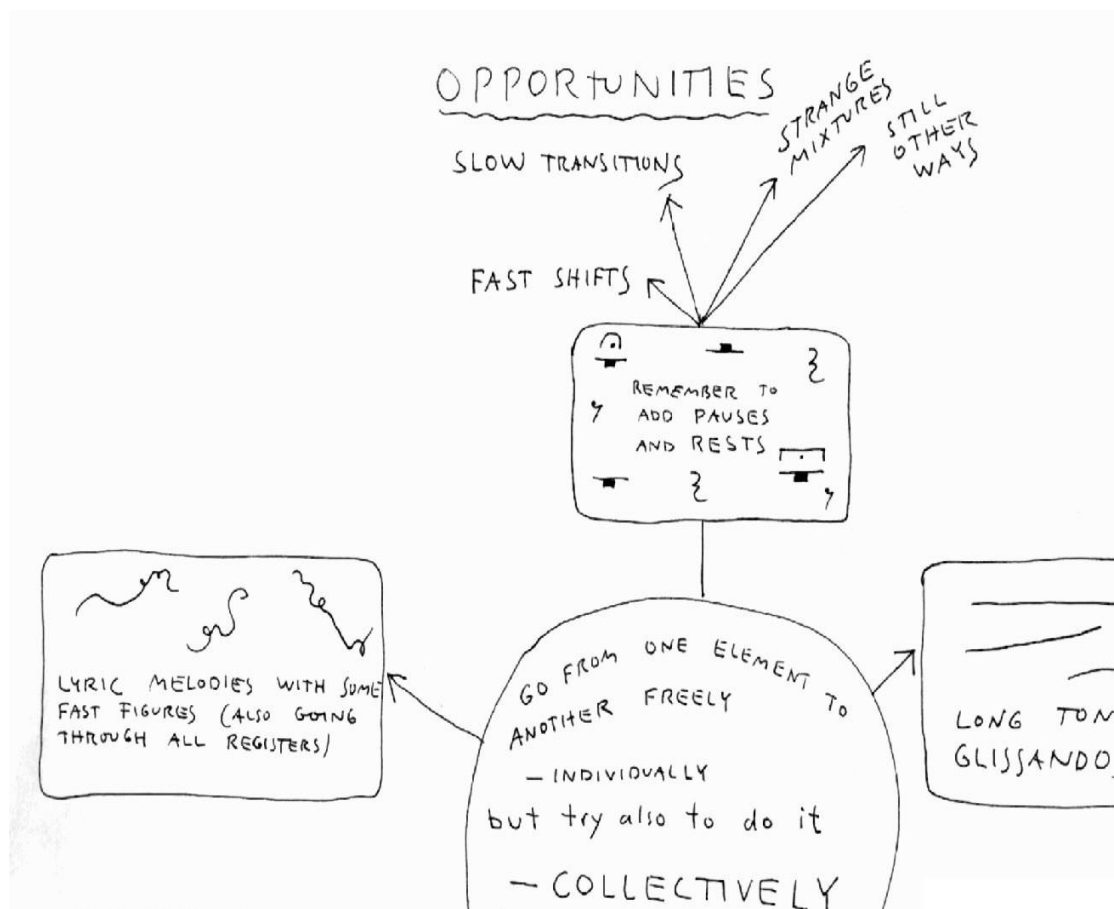 OPPORTUNITIES
STRANGE
MIXTURES
STILL
OTHER
WAYS
SLOW TRANSITIONS
FAST SHIFTS
REMEMBER TO
ADD PAUSES
AND RESTS
LYRIC MELODIES WITH SOME
FAST FIGURES (ALSO GOING
THROUGH ALL REGISTERS)
GO FROM ONE ELEMENT TO
ANOTHER FREELY
– INDIVIDUALLY
but try also to do it
– COLLECTIVELY
LONG TON
GLISSANDO